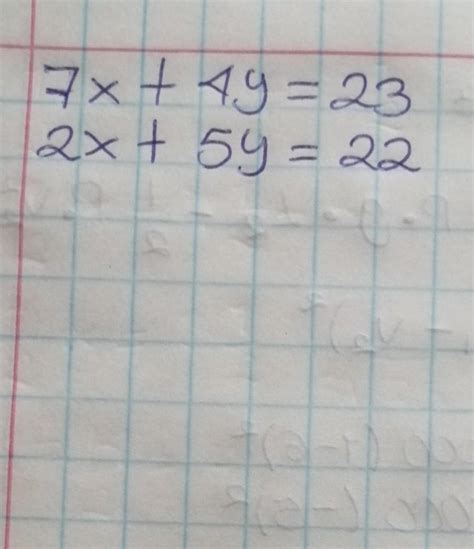 7x + 4y = 23
2x + 5y = 22